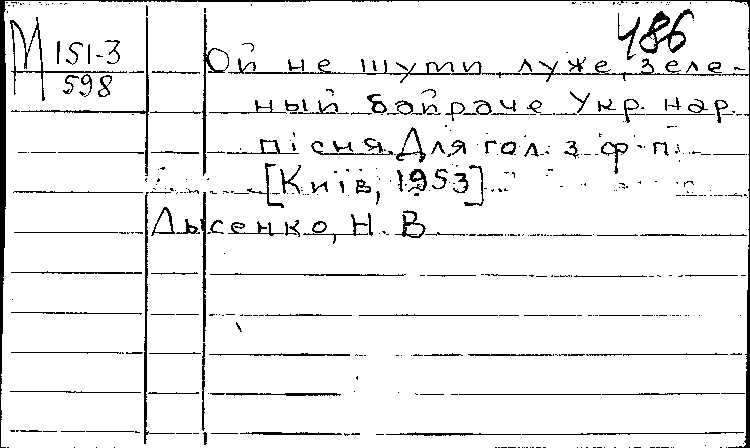 486
М 151-3
598
Ой не шути, луже, зеле-
ный байраче Укр. нар.
пісня. Для гол. з ф-п.
[Київ, 1953]
Лысенко, Н. В.